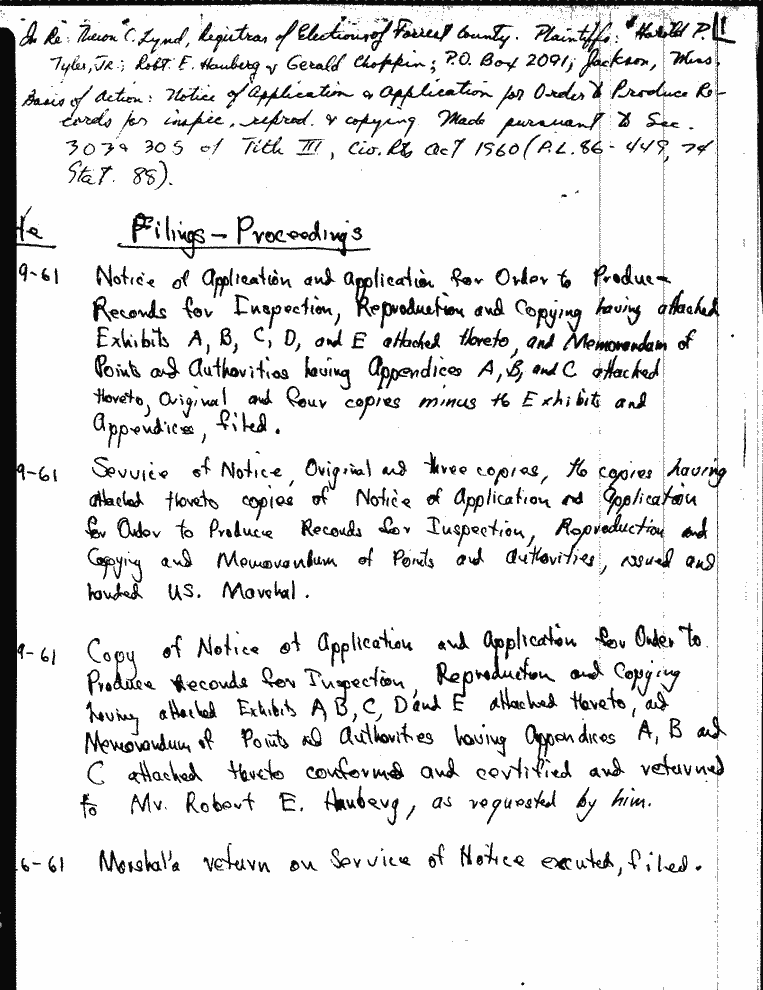 In Re: Theron C. Lynd, Registrar of Elections of Forrest County. Plaintiffs: Harold P. 1
Tyler, Jr.; Robt. E. Hauberg & Gerald Choppin; P.O. Box 2091, Jackson, Miss.
Basis of Action: Notice of Application & Application for Order to Produce Re-
cords for inspec., reprod. & copying Made pursuant to Sec.
303 & 305 of Title III, Civ. Rts Act 1960 (P.L. 86-449, 74
Stat. 88).
te Filings - Proceedings
9-61 Notice of Application and Application for Order to Produce
Records for Inspection, Reproduction and Copying having attached
Exhibits A, B, C, D, and E attached thereto, and Memorandam of
Points and Authorities having Appendices A, B, and C attached
thereto, Original and four copies minus the Exhibits and
Appendices, filed.
9-61 Service of Notice, Original and three copies, the copies having
attached thereto copies of Notice of Application and Application
for Order to Produce Records for Inspection, Reproduction and
Copying and Memorandum of Points and Authorities, issued and
handed US. Marshal.
9-61 Copy of Notice of Application and Application for Order To
Produce Records for Inspection, Reproduction and Copying
having attached Exhibits A, B, C, D and E attached thereto, and
Memorandum of Points and Authorities having Appendices A, B and
C attached thereto conformed and certified and returned
to Mr. Robert E. Hauberg, as requested by him.
6-61 Marshal's return on Service of Notice executed, filed.